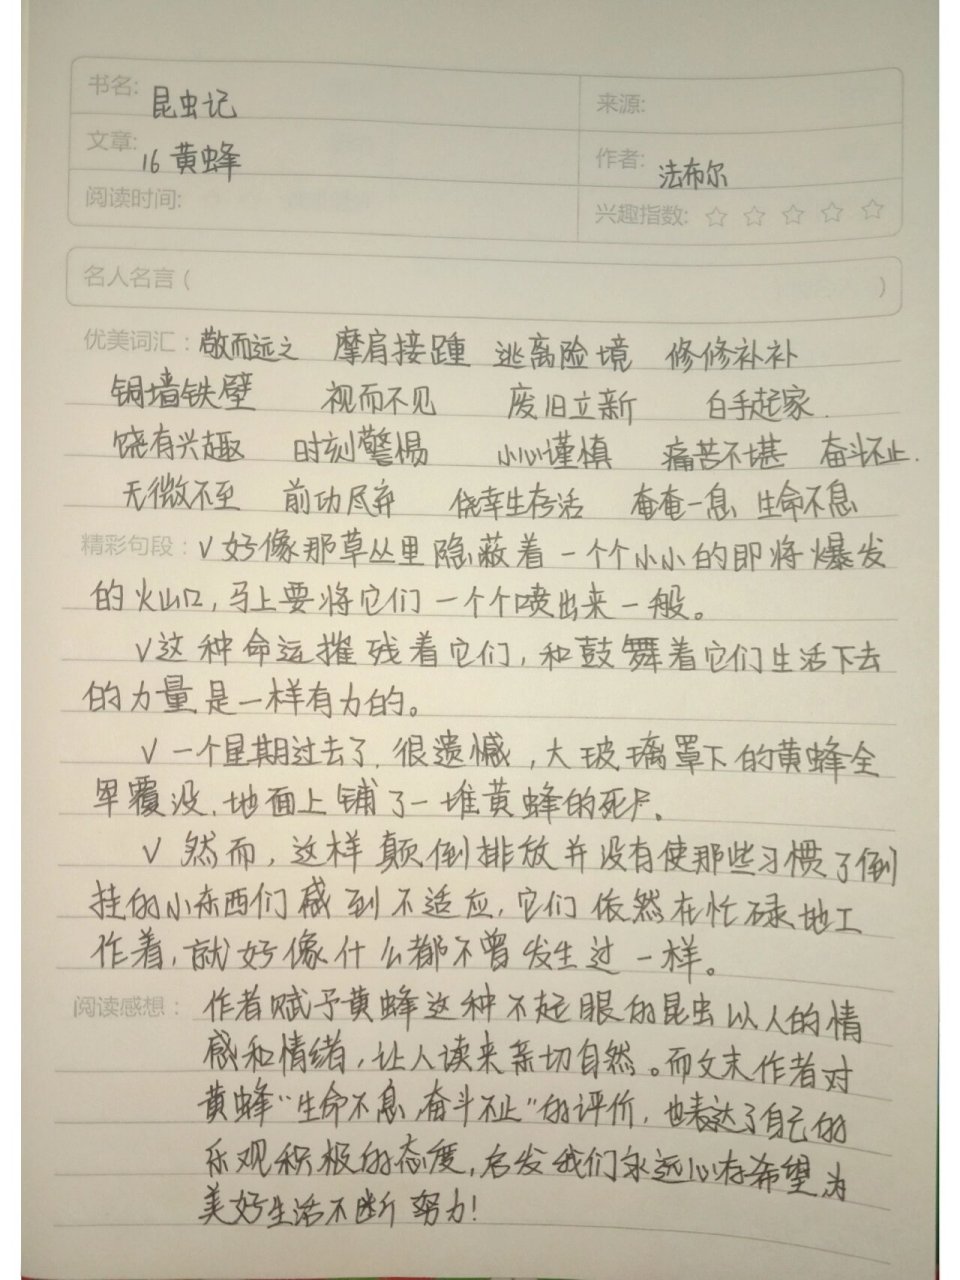 书名: 昆虫记
来源:
文章: 16 黄蜂
作者: 法布尔
阅读时间:
兴趣指数: ☆ ☆ ☆ ☆ ☆
名人名言 ( )
优美词汇: 敬而远之 摩肩接踵 逃离险境 修修补补
铜墙铁壁 视而不见 废旧立新 白手起家.
饶有兴趣 时刻警惕 小心谨慎 痛苦不堪 奋斗不止.
无微不至 前功尽弃 侥幸生存活 奄奄一息 生命不息
精彩句段: √好像那草丛里隐蔽着一个个小小的即将爆发
的火山口,马上要将它们一个个喷出来一般。
√这种命运摧残着它们,和鼓舞着它们生活下去
的力量是一样有力的。
√一个星期过去了.很遗憾,大玻璃罩下的黄蜂全
军覆没.地面上铺了一堆黄蜂的死尸。
√然而,这样颠倒排放并没有使那些习惯了倒
挂的小东西们感到不适应,它们依然在忙碌地工
作着,就好像什么都不曾发生过一样。
阅读感想: 作者赋予黄蜂这种不起眼的昆虫以人的情
感和情绪,让人读来亲切自然。而文末作者对
黄蜂“生命不息,奋斗不止”的评价,也表达了自己的
乐观积极的态度,启发我们永远心存希望为
美好生活不断努力!